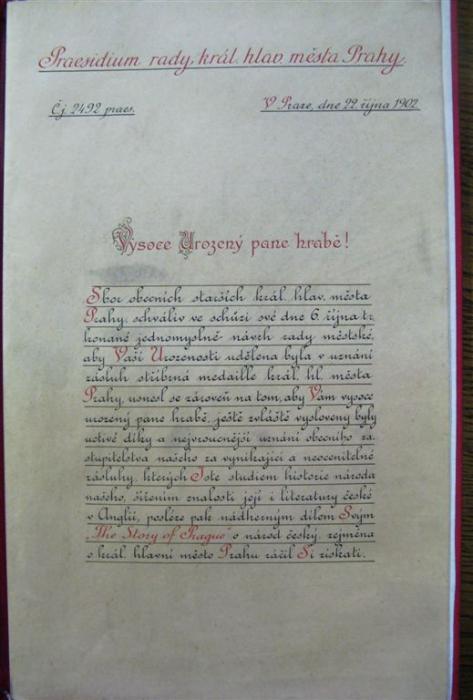 Praesidium rady král. hlav. města Prahy.
Č.j. 2492 praes.
V Praze, dne 22. října 1902
Vysoce Urozený pane hrabě!
Sbor obecních starších král. hlav. města
Prahy, schváliv ve schůzi své dne 6. října t.r.
konané jednomyslně návrh rady městské,
aby Vaší Urozenosti udělena byla v uznání
zásluh stříbrná medaille král. hl. města
Prahy, usnesl se zároveň na tom, aby Vám vysoce
urozený pane hrabě, ještě zvláště vysloveny byly
uctivé díky a nejvroucnější uznání obecního za-
stupitelstva našeho za vynikající a neocenitelné
zásluhy, kterých Jste studiem historie národa
našeho, šířením znalosti její i literatury české
v Anglii, posléze pak nádherným dílom Svým
„The Story of Prague" o národ český, zejména
o král. hlavní město Prahu ráčil Si získati.